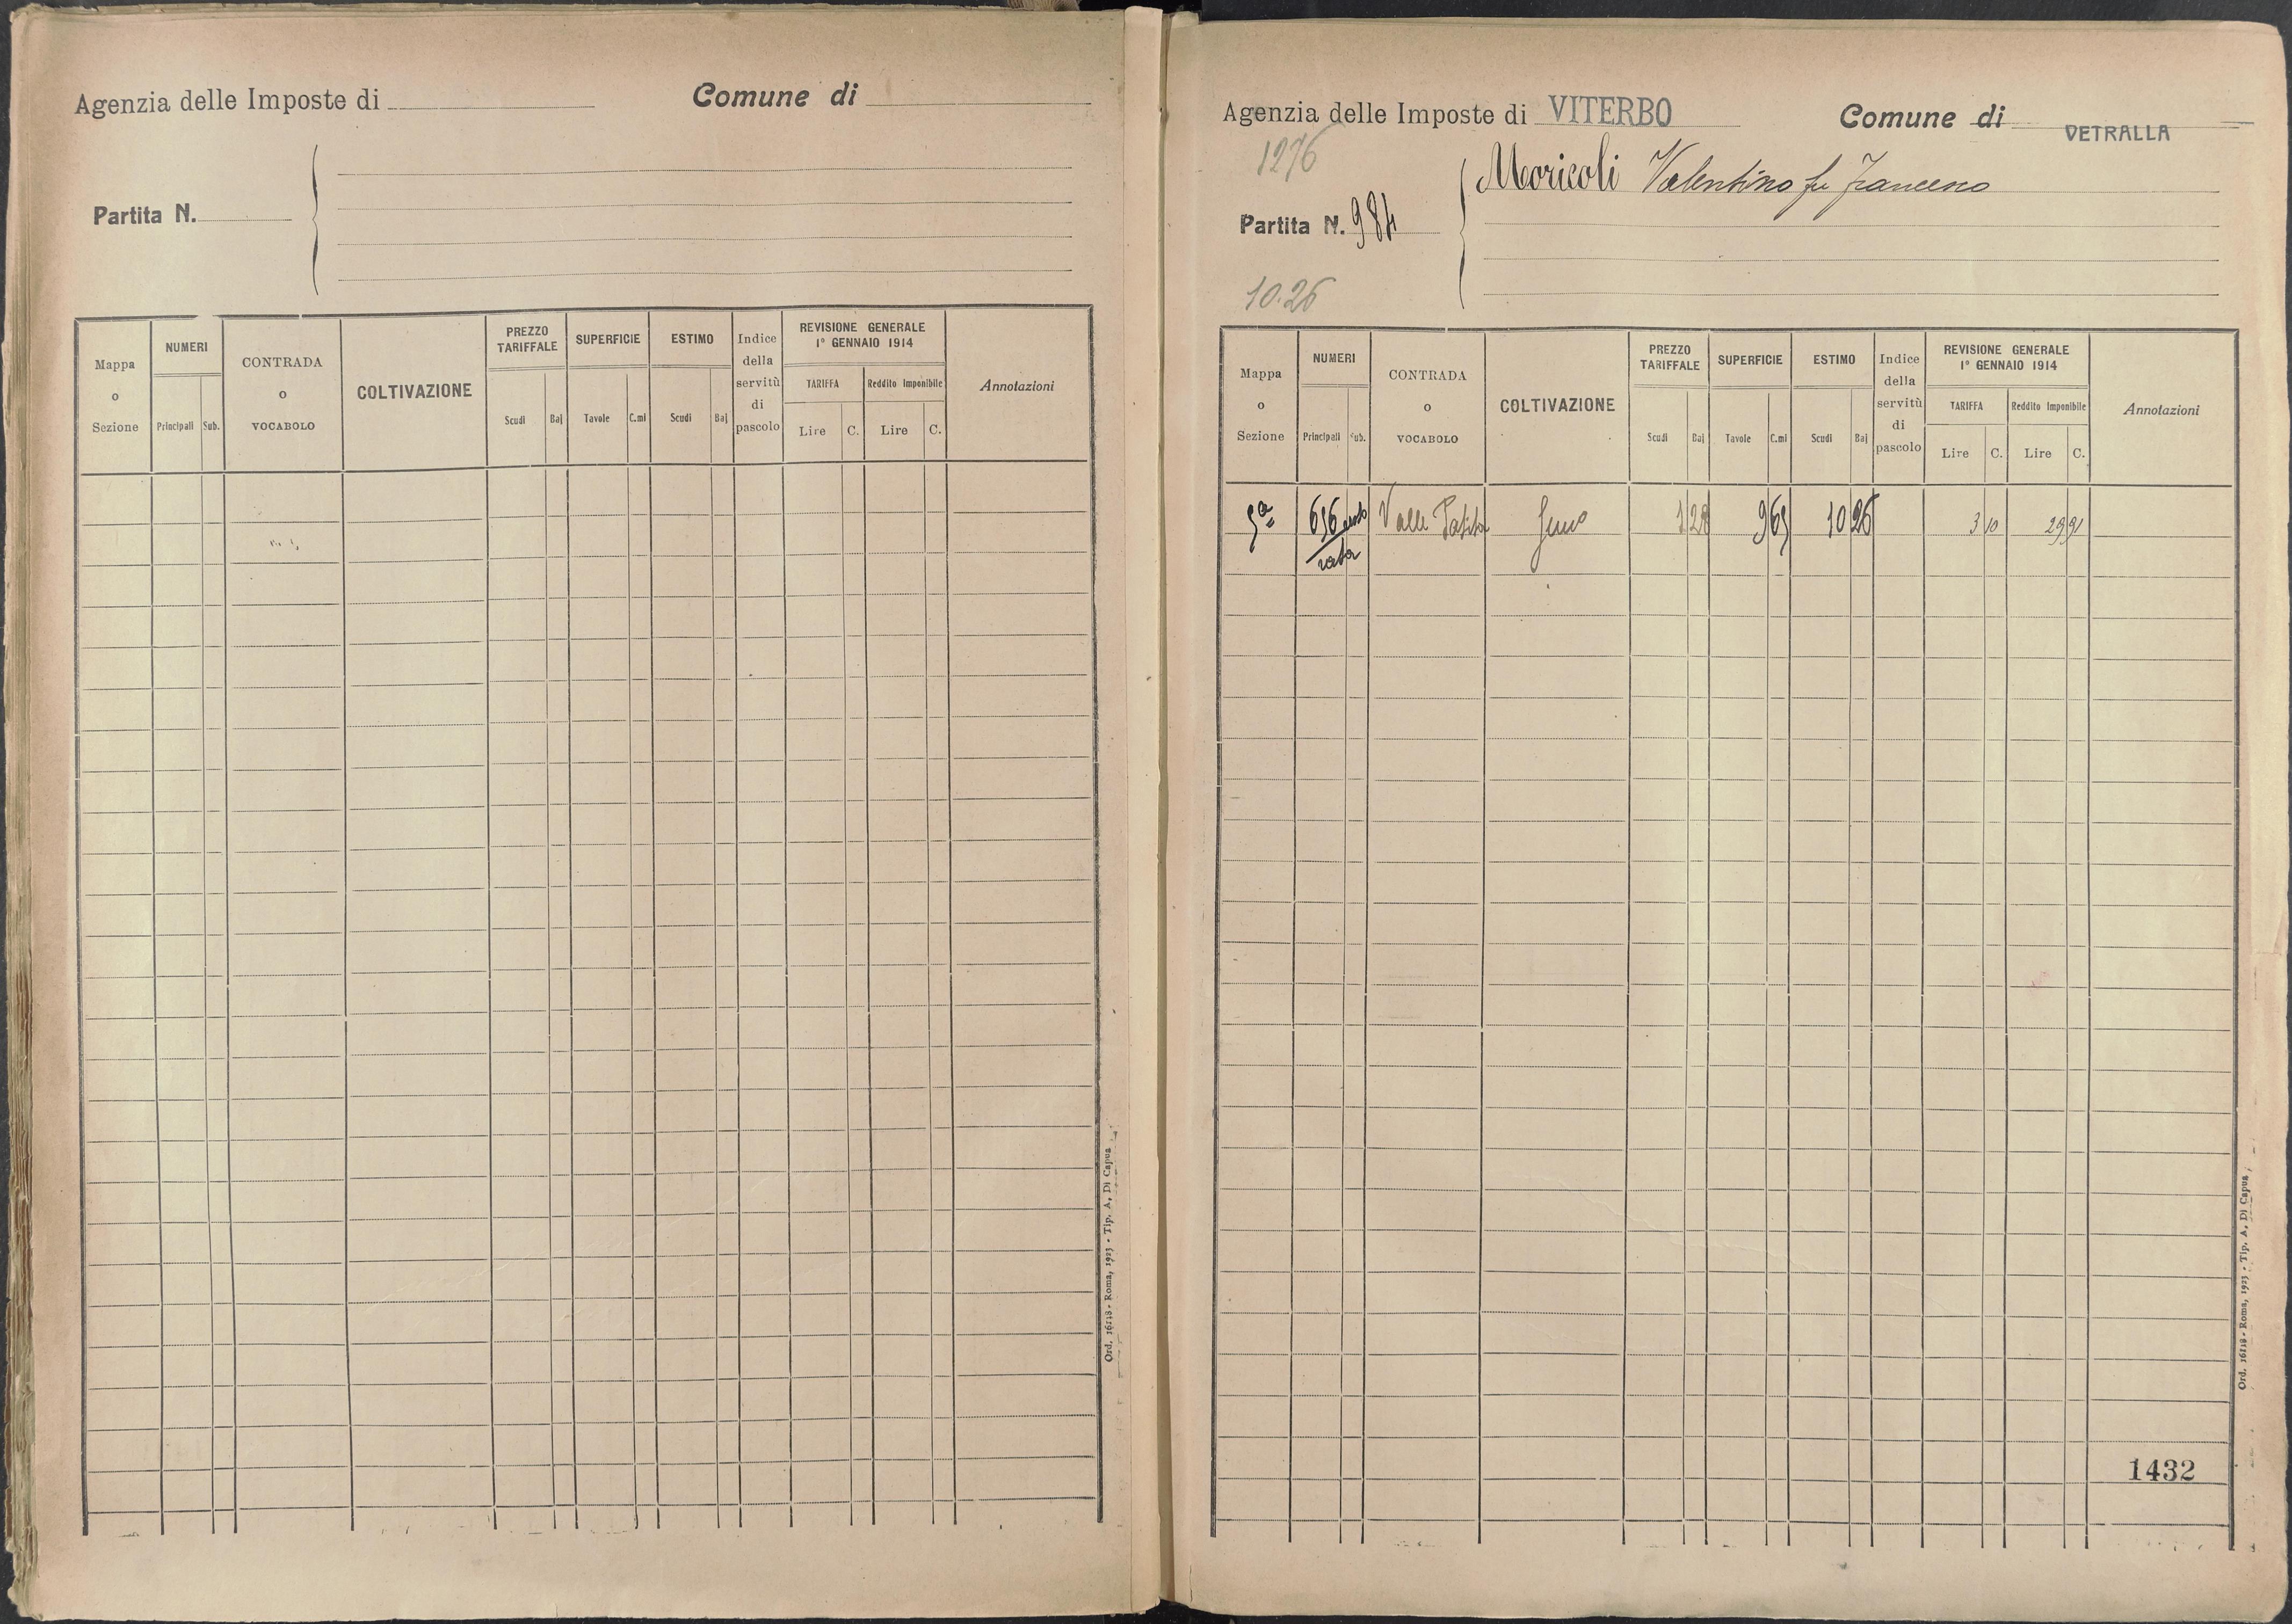 Agenzia delle Imposte di
Comune di
Partita N.
Mappa o Sezione
NUMERI
Principali
Sub.
CONTRADA o VOCABOLO
COLTIVAZIONE
PREZZO TARIFFALE
Scudi
Baj
SUPERFICIE
Tavole
C.mi
ESTIMO
Scudi
Baj
Indice della servitù di pascolo
REVISIONE GENERALE
1° GENNAIO 1914
TARIFFA
Lire
C.
Reddito Imponibile
Lire
C.
Annotazioni
Ord. 16118 - Roma, 1923 - Tip. A. Di Capua
Agenzia delle Imposte di VITERBO
Comune di VETRALLA
1276
Moricoli Valentino fu Francesco
Partita N. 984
10.26
Mappa o Sezione
NUMERI
Principali
Sub.
CONTRADA o VOCABOLO
COLTIVAZIONE
PREZZO TARIFFALE
Scudi
Baj
SUPERFICIE
Tavole
C.mi
ESTIMO
Scudi
Baj
Indice della servitù di pascolo
REVISIONE GENERALE
1° GENNAIO 1914
TARIFFA
Lire
C.
Reddito Imponibile
Lire
C.
Annotazioni
5a 656 Valle 1 28 9 65 10 26 3 10 29 91
rata
1432
Ord. 16118 - Roma, 1923 - Tip. A. Di Capua